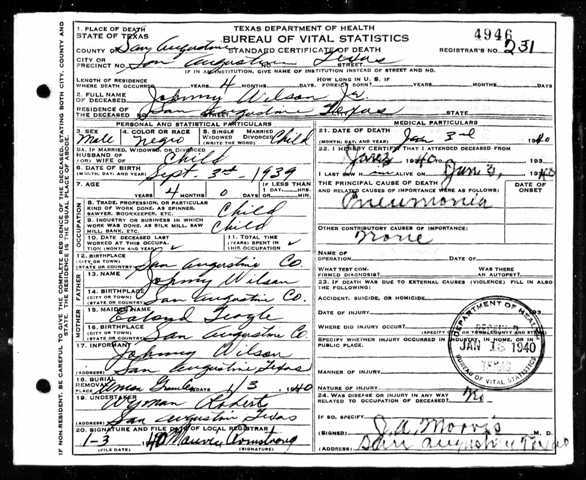 TEXAS DEPARTMENT OF HEALTH
BUREAU OF VITAL STATISTICS
STANDARD CERTIFICATE OF DEATH
4946
REGISTRAR'S NO. 231
1. PLACE OF DEATH
STATE OF TEXAS
COUNTY OF San Augustine
CITY OR PRECINCT NO. San Augustine Texas STREET
IF IN AN INSTITUTION, GIVE NAME OF INSTITUTION INSTEAD OF STREET AND NO.
LENGTH OF RESIDENCE WHERE DEATH OCCURRED YEARS 4 MONTHS DAYS. HOW LONG IN U. S. IF FOREIGN BORN? YEARS MONTHS DAYS
2. FULL NAME OF DECEASED Johnny Wilson Jr
RESIDENCE OF THE DECEASED San Augustine Texas STATE
PERSONAL AND STATISTICAL PARTICULARS
3. SEX Male
4. COLOR OR RACE negro
5. SINGLE WIDOWED MARRIED DIVORCED (WRITE THE WORD) Child
5A. IF MARRIED, WIDOWED, OR DIVORCED HUSBAND OF (OR) WIFE OF Child
6. DATE OF BIRTH (MONTH, DAY, AND YEAR) Sept. 3rd 1939
7. AGE YEARS 4 MONTHS 0 DAYS IF LESS THAN 1 DAY HOURS MIN.
8. TRADE, PROFESSION, OR PARTICULAR KIND OF WORK DONE, AS SPINNER, SAWYER, BOOKKEEPER, ETC. Child
9. INDUSTRY OR BUSINESS IN WHICH WORK WAS DONE, AS SILK MILL, SAW MILL, BANK, ETC. Child
10. DATE DECEASED LAST WORKED AT THIS OCCUPATION (MONTH AND YEAR)
11. TOTAL TIME (YEARS) SPENT IN THIS OCCUPATION
12. BIRTHPLACE (CITY OR TOWN) (STATE OR COUNTRY) San Augustine Co
FATHER
13. NAME Johnny Wilson
14. BIRTHPLACE (CITY OR TOWN) (STATE OR COUNTRY) San Augustine Co.
MOTHER
15. MAIDEN NAME
16. BIRTHPLACE (CITY OR TOWN) (STATE OR COUNTRY) San Augustine Co.
17. INFORMANT Johnny Wilson
(ADDRESS) San Augustine Texas
18. BURIAL REMOVAL DATE 1/3 1940
19. UNDERTAKER Wyman Roberts
(ADDRESS) San Augustine Texas
20. SIGNATURE AND FILE DATE OF LOCAL REGISTRAR
1-3 40 Maurice Armstrong
(FILE DATE) (SIGNATURE)
MEDICAL PARTICULARS
21. DATE OF DEATH (MONTH, DAY, AND YEAR) Jan 3rd 1940
22. I HEREBY CERTIFY THAT I ATTENDED DECEASED FROM
Jan 3 1940
I LAST SAW H ALIVE ON Jan 3, 1940
THE PRINCIPAL CAUSE OF DEATH AND RELATED CAUSES OF IMPORTANCE WERE AS FOLLOWS:
DATE OF ONSET
Pneumonia
OTHER CONTRIBUTORY CAUSES OF IMPORTANCE:
None
NAME OF OPERATION DATE OF
WHAT TEST CONFIRMED DIAGNOSIS? WAS THERE AN AUTOPSY?
23. IF DEATH WAS DUE TO EXTERNAL CAUSES (VIOLENCE) FILL IN ALSO THE FOLLOWING:
ACCIDENT, SUICIDE, OR HOMICIDE.
DATE OF INJURY
WHERE DID INJURY OCCUR?
SPECIFY WHETHER INJURY OCCURRED IN INDUSTRY, IN HOME, OR IN PUBLIC PLACE.
MANNER OF INJURY
NATURE OF INJURY
24. WAS DISEASE OR INJURY IN ANY WAY RELATED TO OCCUPATION OF DECEASED? no
IF SO, SPECIFY
(SIGNED) J. A. Morris M. D.
(ADDRESS) San Augustine Texas
DEPARTMENT OF HEALTH
JAN 18 1940
BUREAU OF VITAL STATISTICS